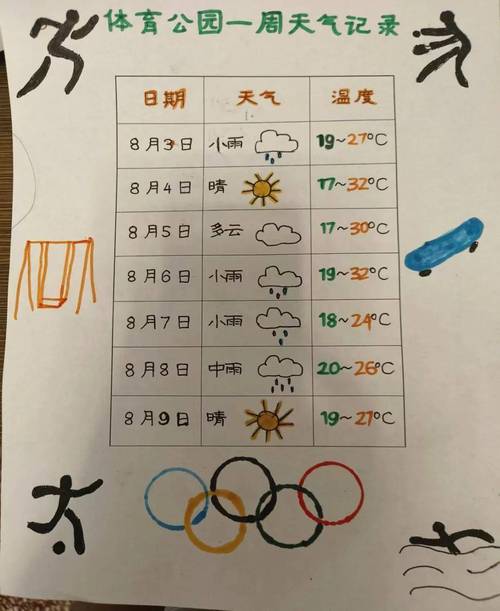 体育公园一周天气记录
日期 天气 温度
8月3日 小雨 19~27°C
8月4日 晴 17~32°C
8月5日 多云 17~30°C
8月6日 小雨 19~32°C
8月7日 小雨 18~24°C
8月8日 中雨 20~26°C
8月9日 晴 19~27°C